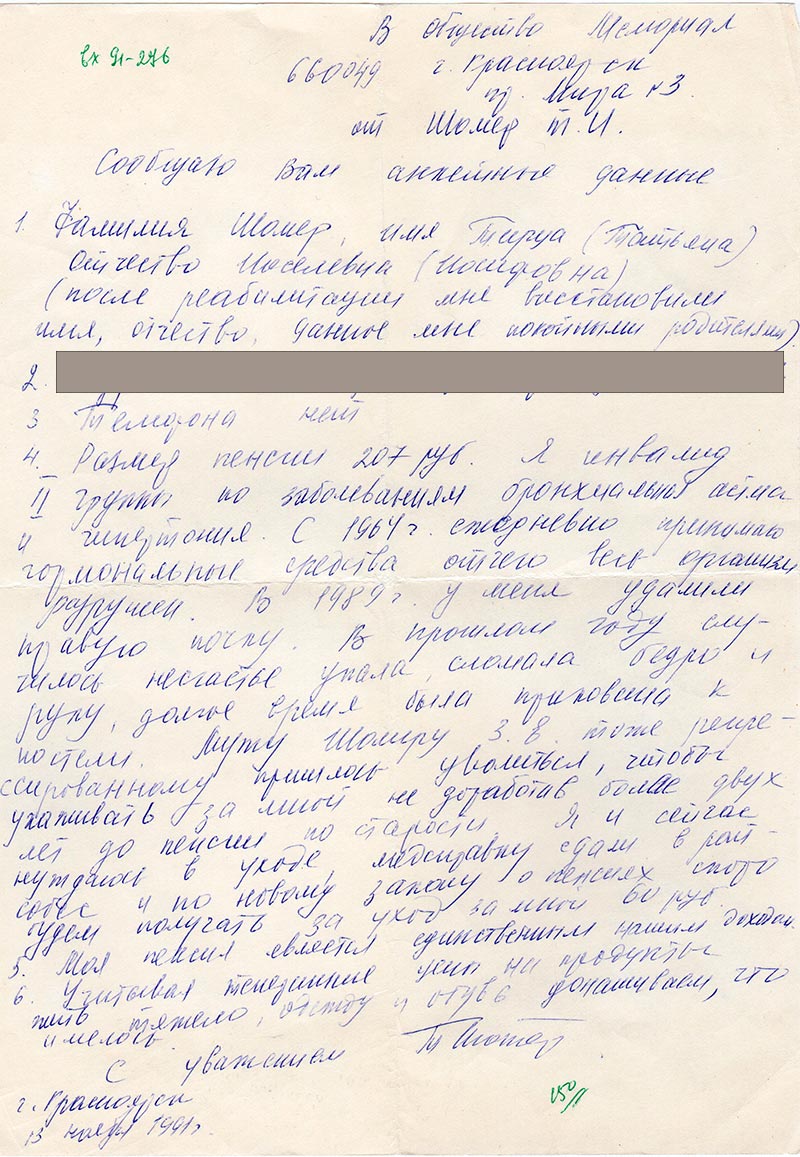 вх 91-276
В общество Мемориал
660049 г. Красноярск
пр. Мира №3.
от Шомер Т.И.
Сообщаю вам анкетные данные
1. Фамилия Шомер, имя Тируа (Татьяна)
отчество Иоселевна (Иосифовна)
(после реабилитации мне восстановили
имя, отчество, данное мне покойными родителями)
2.
3 Телефона нет
4. Размер пенсии 207 руб. Я инвалид
II группы по заболеваниям бронхиальный астма
и гипертония. С 1964 г. ежедневно принимаю
гормональные средства отчего весь организм
разрушен. В 1989 г. у меня удалили
правую почку. В прошлом году слу-
чилось несчастье упала, сломала бедро и
руку, долгое время была прикована к
постели. Мужу Шомеру З.В. тоже репре-
ссированному пришлось уволиться, чтобы
ухаживать за мной не доработав более двух
лет до пенсии по старости Я и сейчас
нуждаюсь в уходе, медсправку сдали в рай-
собес и по новому закону о пенсиях скоро
будем получать за уход за мной 60 руб.
5. Моя пенсия является единственным нашим доходом.
6. Учитывая теперешние цены на продукты
жить тяжело, одежду и обувь донашиваем, что
имелось
С уважением Т Шомер
г. Красноярск
13 ноября 1991г.